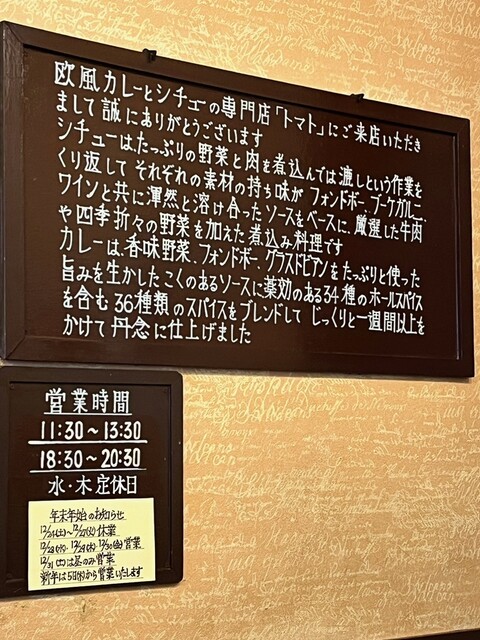 欧風カレーとシチューの専門店「トマト」にご来店いただき
まして誠にありがとうございます
シチューはたっぷりの野菜と肉を煮込んでは漉しという作業を
くり返してそれぞれの素材の持ち味がフォンドボー、ブーケガルニ、
ワインと共に渾然と溶け合ったソースをベースに、厳選した牛肉
や四季折々の野菜を加えた煮込み料理です
カレーは、香味野菜、フォンドボー、グラスドビアンをたっぷりと使った
旨みを生かしたこくのあるソースに薬効のある34種のホールスパイス
を含む36種類のスパイスをブレンドしてじっくりと一週間以上を
かけて丹念に仕上げました
営業時間
11:30～13:30
18:30～20:30
水・木定休日
年末年始のお知らせ
12/24(土)～12/27(火)休業
12/28(水)、12/29(木)、12/30(金)営業
12/31(土)は昼のみ営業
新年は5日(木)から営業いたします